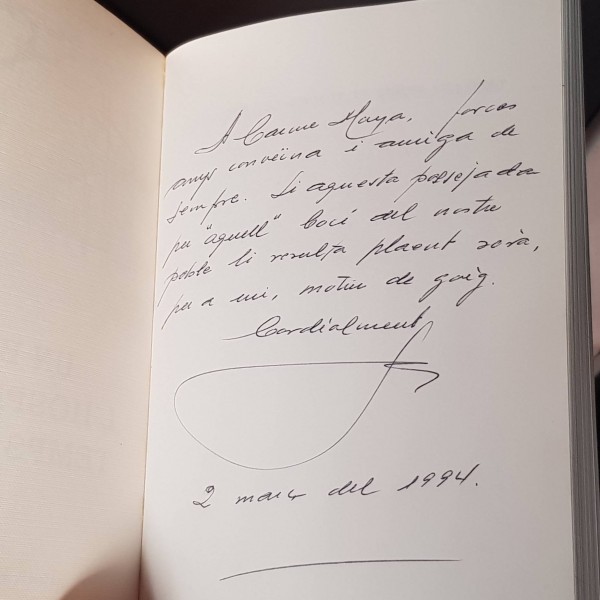 A Carme Maya, forces
anys conveïna i amiga de
sempre. Si aquesta passejada
per "aquell" bocí del nostre
poble li resulta plaent serà,
per a mi, motiu de goig.
Cordialment
2 març del 1994.